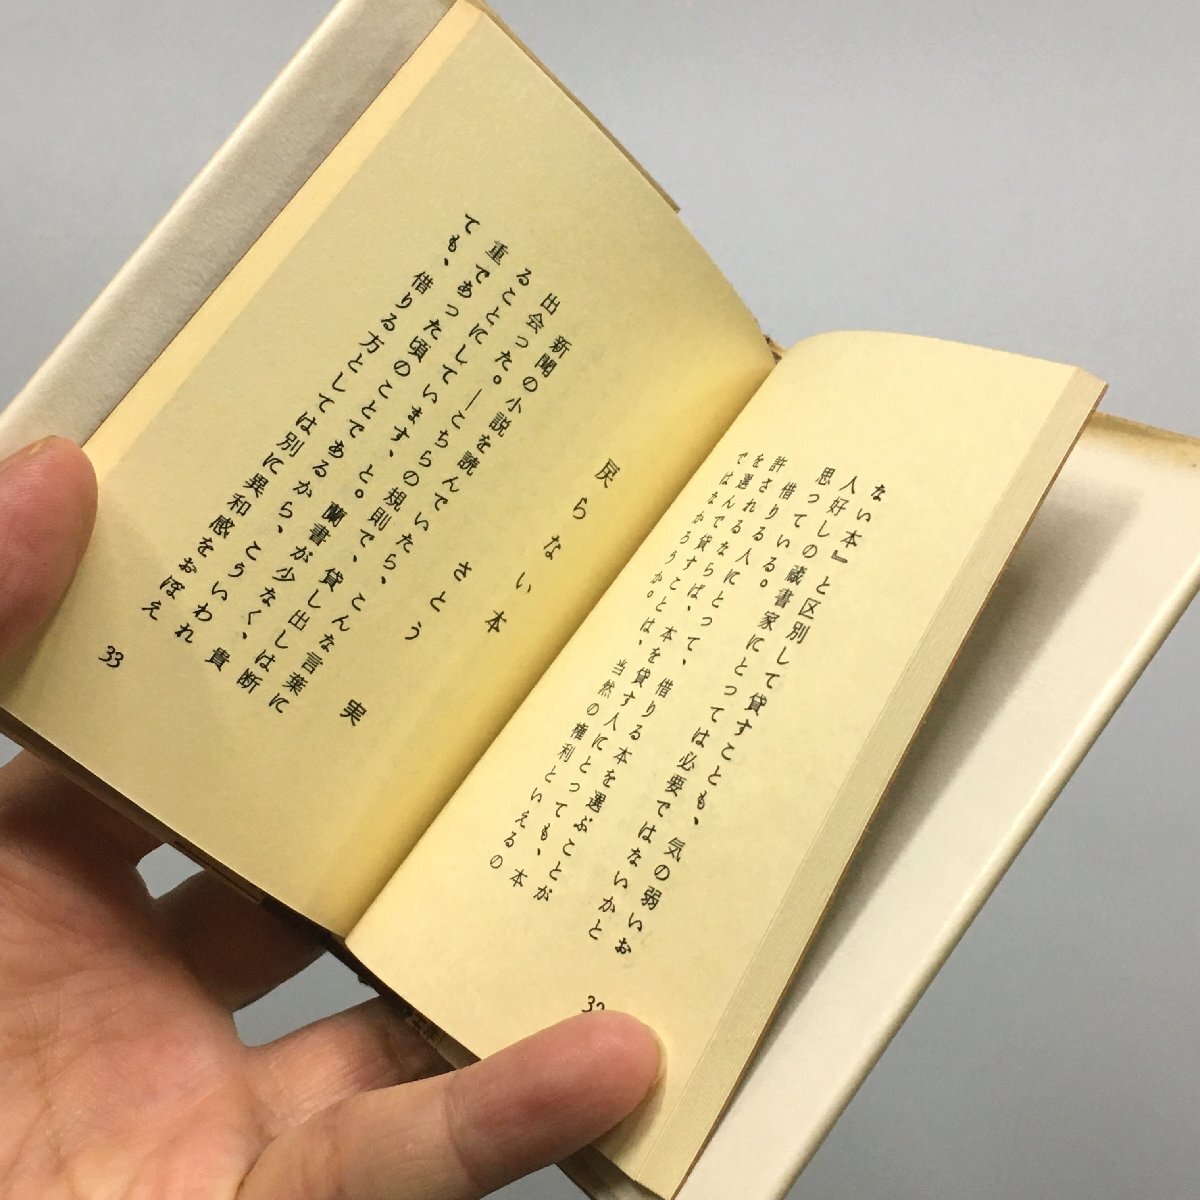 ない本』と区別して貸すことも、気の弱いお
人好しの蔵書家にとっては必要ではないかと
思っている。
借りる人にとって、借りる本を選ぶことが
許されるならば、本を貸す人にとっても、本
を選んで貸すことは、当然の権利といえるの
ではなかろうか。
32
戻らない本
さとう 実
新聞の小説を読んでいたら、こんな言葉に
出会った。―こちらの規則で、貸し出しは断
ることにしています、と。蘭書が少なく、貴
重であった頃のことであるから、こういわれ
ても、借りる方としては別に異和感をおぼえ
33